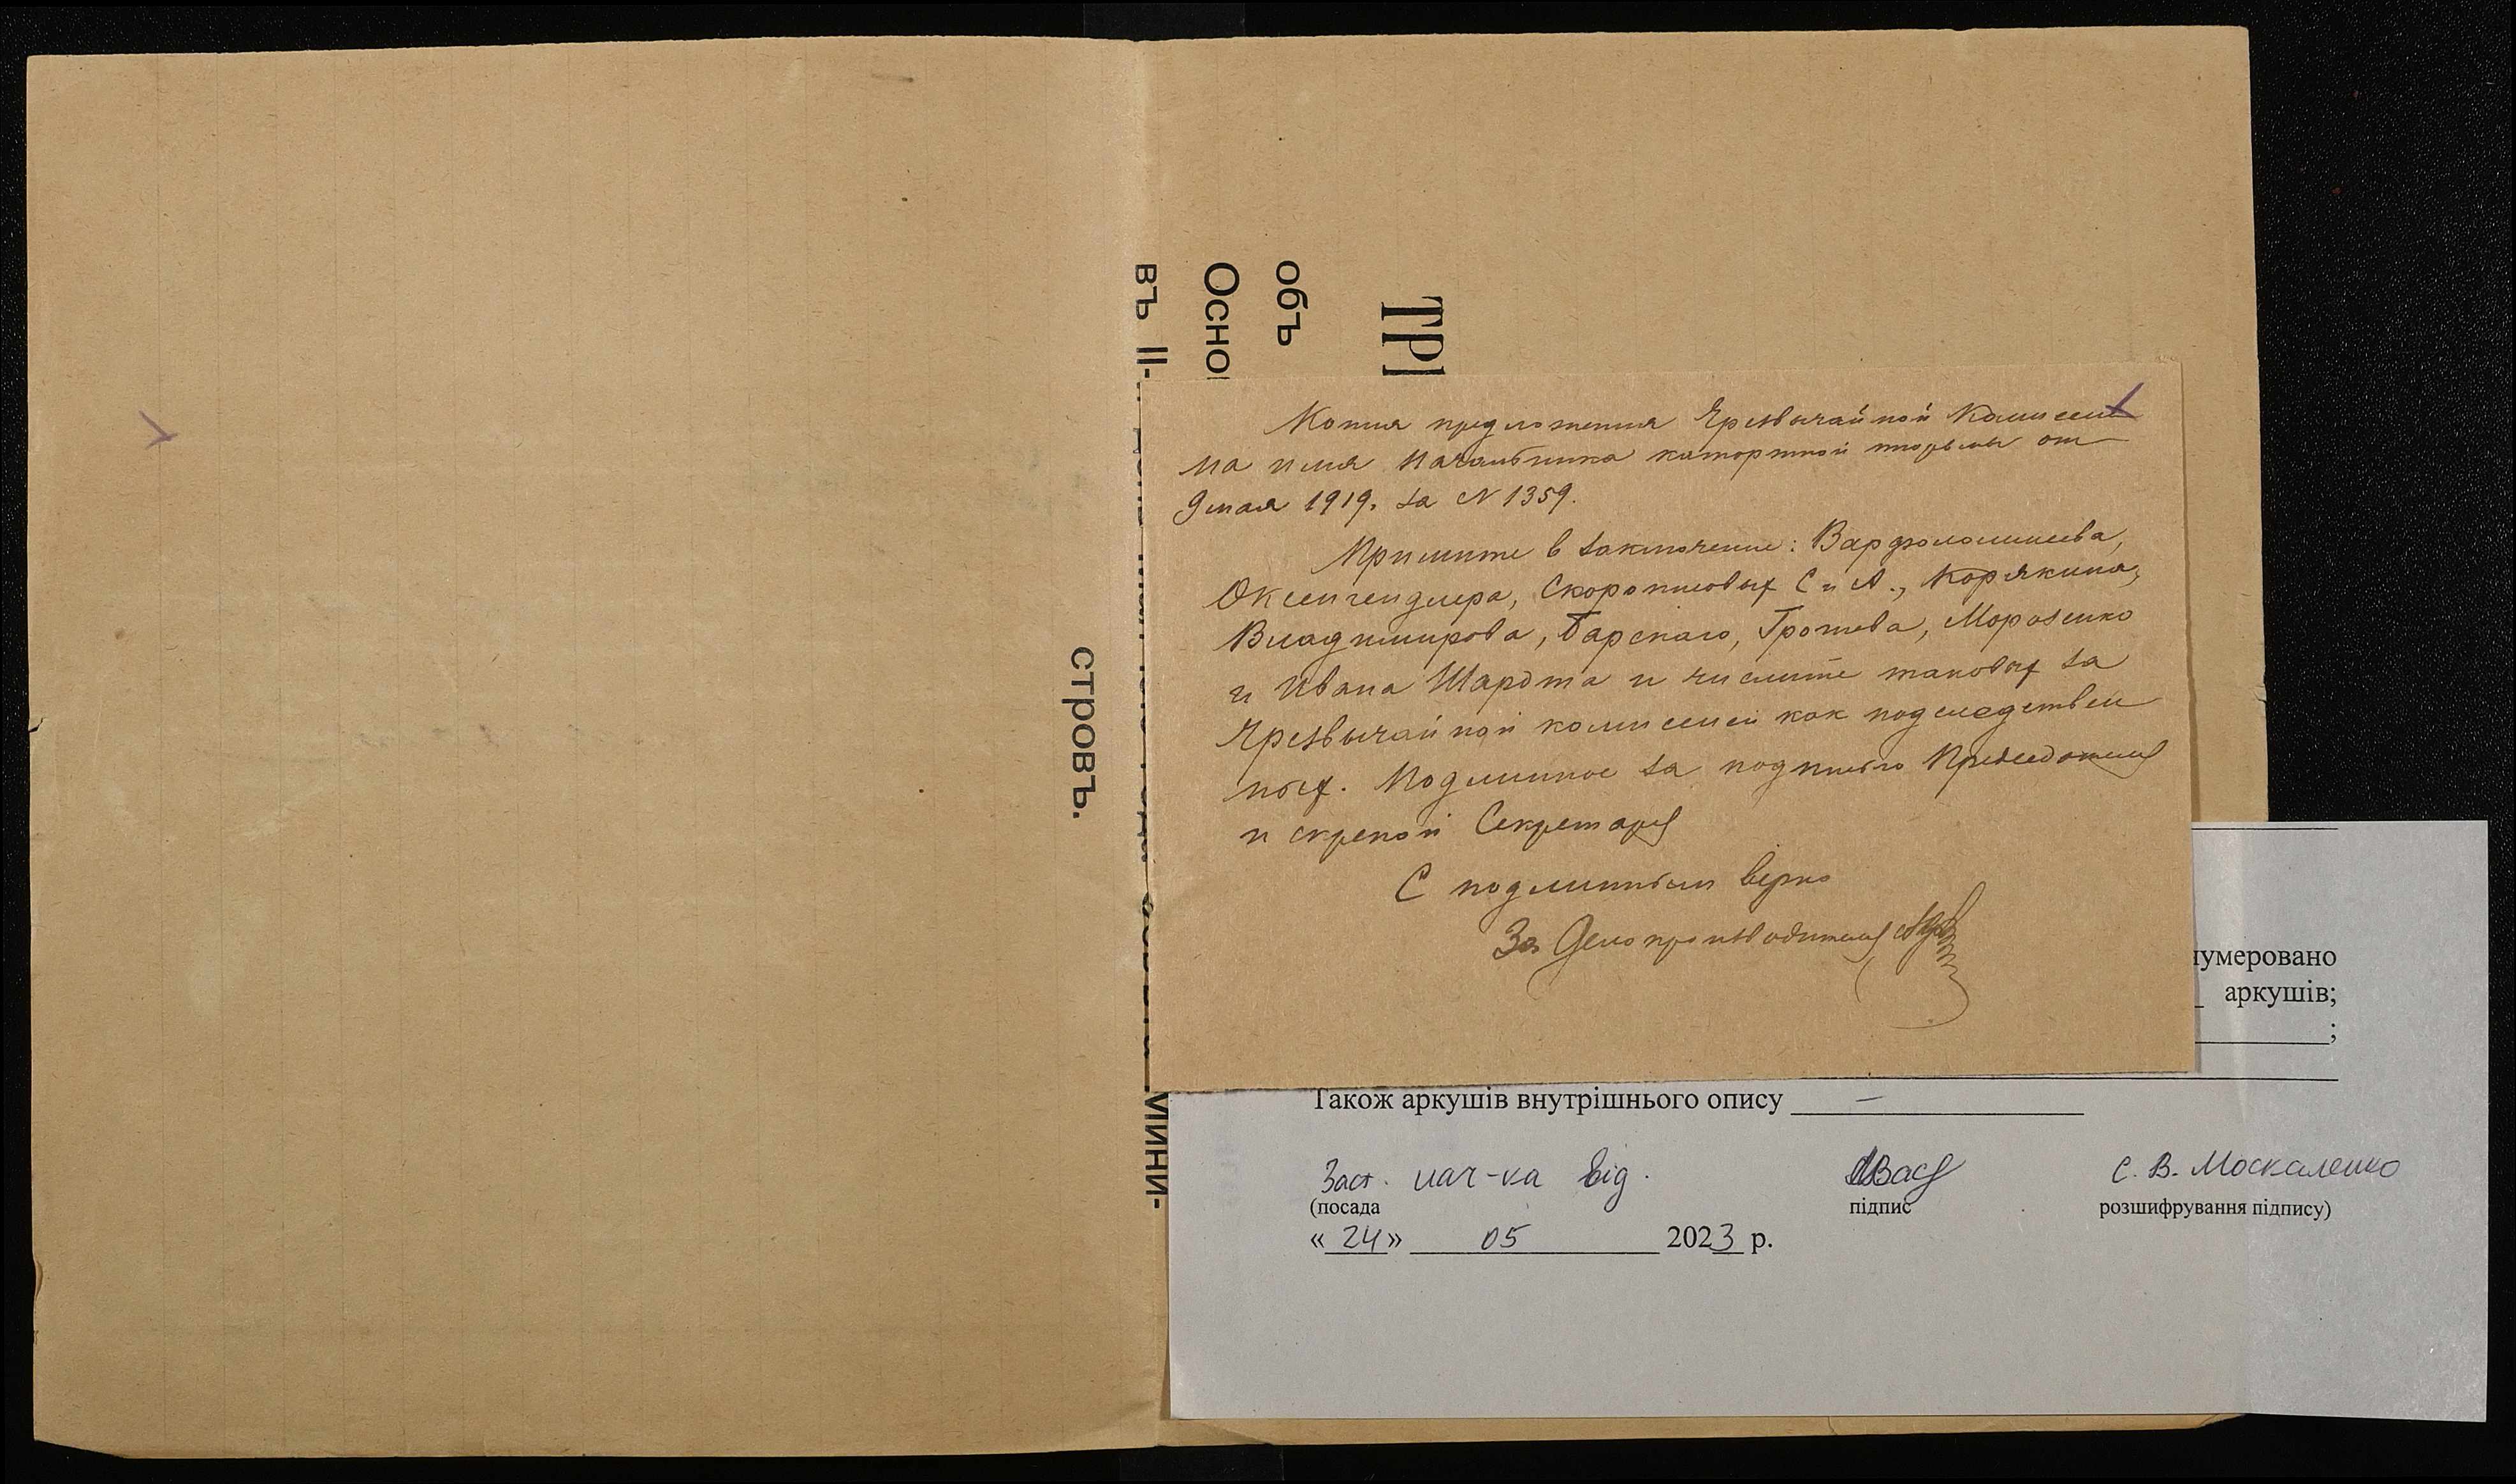 ТРІ
объ
Осно
въ II-
МИНИ-
стровъ.
Копия предложения Чрезвычайной Комиссии
на имя Начальника каторжной тюрьмы от
9 мая 1919. за № 1359.
Примите в заключение: Варфоломеева,
Оксенгендлера, Скорописовых С и А., Корякина,
Владимирова, Барскаго, Громова, Морозенко
и Ивана Шардта и числите таковых за
Чрезвычайной комиссией как подследствен
ных. Подлинное за подписью Председателя
и скрепой Секретаря
С подлинным вѣрно
За Делопроизводителя
нумеровано
аркушів;
;
Також аркушів внутрішнього опису —
Заст. нач-ка від. С. В. Москаленко
(посада підпис розшифрування підпису)
« 24 » 05 2023 р.